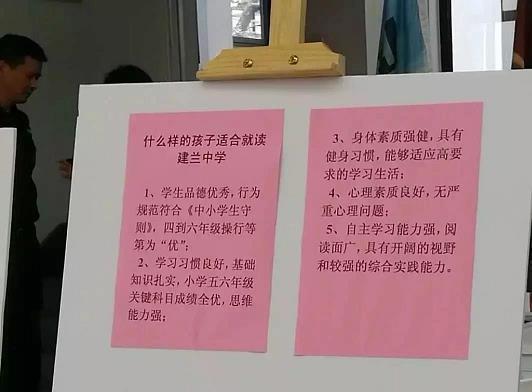 什么样的孩子适合就读
建兰中学
1、学生品德优秀，行为
规范符合《中小学生守
则》，四到六年级操行等
第为“优”；
2、学习习惯良好，基础
知识扎实，小学五六年级
关键科目成绩全优，思维
能力强；
3、身体素质强健，具有
健身习惯，能够适应高要
求的学习生活；
4、心理素质良好，无严
重心理问题；
5、自主学习能力强，阅
读面广，具有开阔的视野
和较强的综合实践能力。